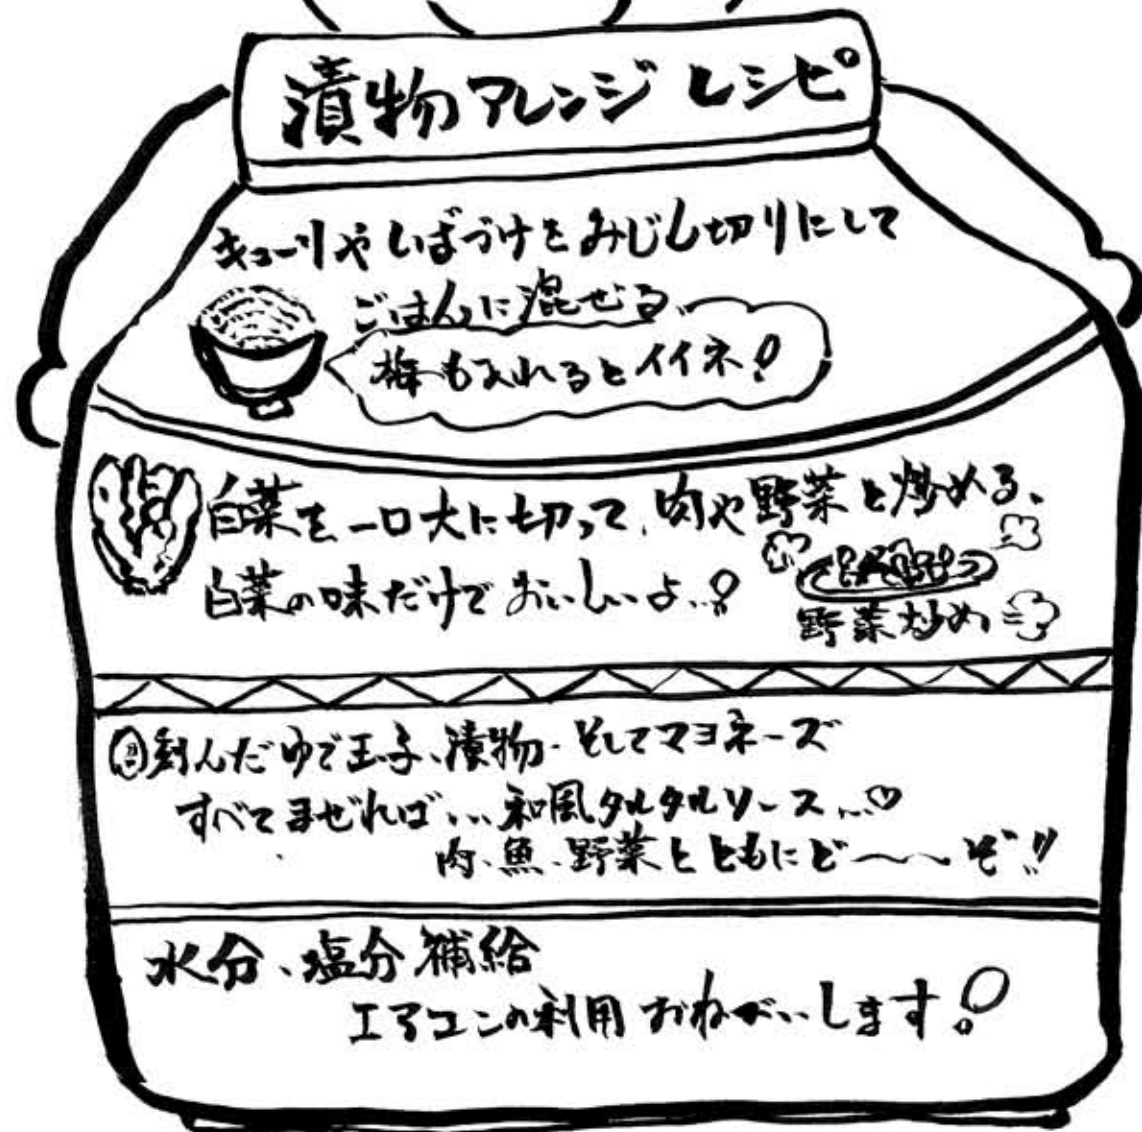 漬物アレンジレシピ
キューリやしばづけをみじん切りにして
ごはんに混ぜる、
梅も入れるとイイネ!
白菜を一口大に切って、肉や野菜と炒める、
白菜の味だけでおいしいよ…!
野菜炒め
刻んだゆで玉子、漬物、そしてマヨネーズ
すべてまぜれば、… 和風タルタルソース…♡
肉、魚、野菜とともにど〜〜ぞ!!
水分、塩分補給
エアコンの利用おねがいします!